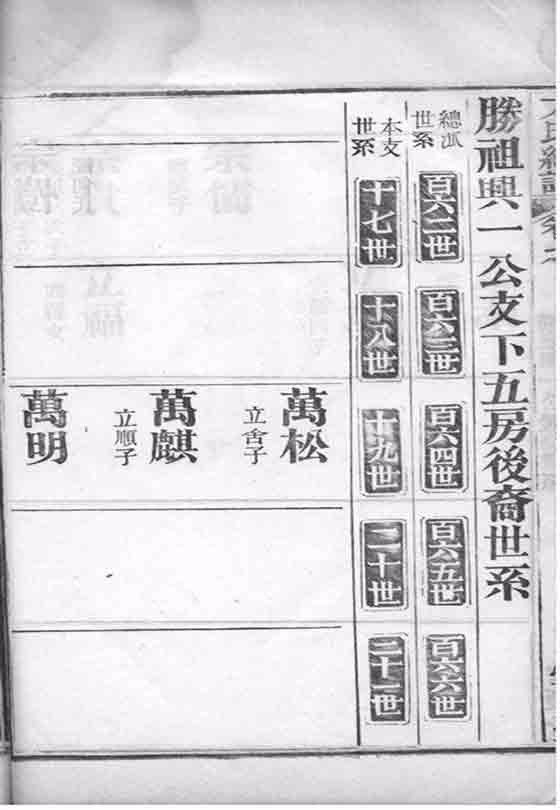 勝祖興一公支下五房後裔世系
總派世系
百六二世
百六三世
百六四世
百六五世
百六六世
本支世系
十七世
十八世
十九世
二十世
二十一世
萬松
立舍子
萬麒
立順子
萬明